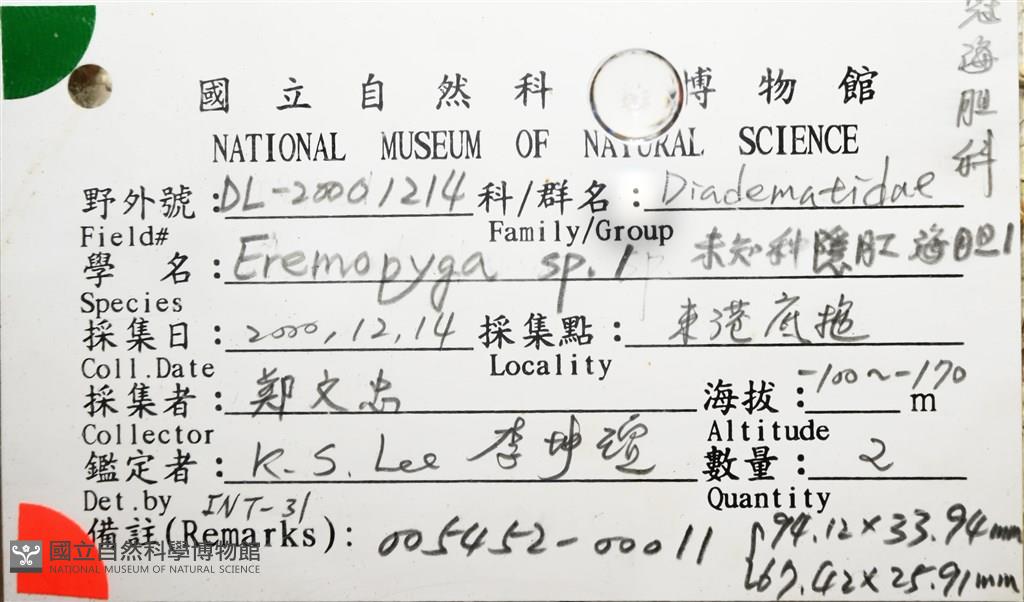 冠海胆科
國立自然科 博物館
NATIONAL MUSEUM OF NATURAL SCIENCE
野外號：DL-20001214 科/群名：Diadematidae
Field# Family/Group
學 名：Eremopyga sp.1 未知科隱肛海胆1
Species
採集日：2000,12,14 採集點：東港底拖
Coll.Date Locality
採集者：鄭文忠 海拔：-100～-170 m
Collector Altitude
鑑定者：K.S. Lee 李坤瑄 數量：2
Det.by INT-31 Quantity
備註(Remarks)：005452-00011 94.12×33.94mm
67.42×25.91mm
國立自然科學博物館
NATIONAL MUSEUM OF NATURAL SCIENCE